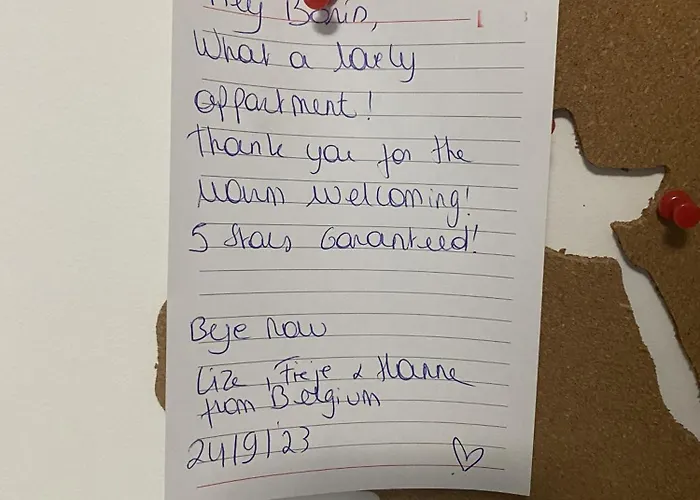 Hey Boris,
What a lovely
appartment!
Thank you for the
warm welcoming!
5 stars Garanteed!
Bye now
Lize, Fieje & Hanne
from Belgium
24/9/'23